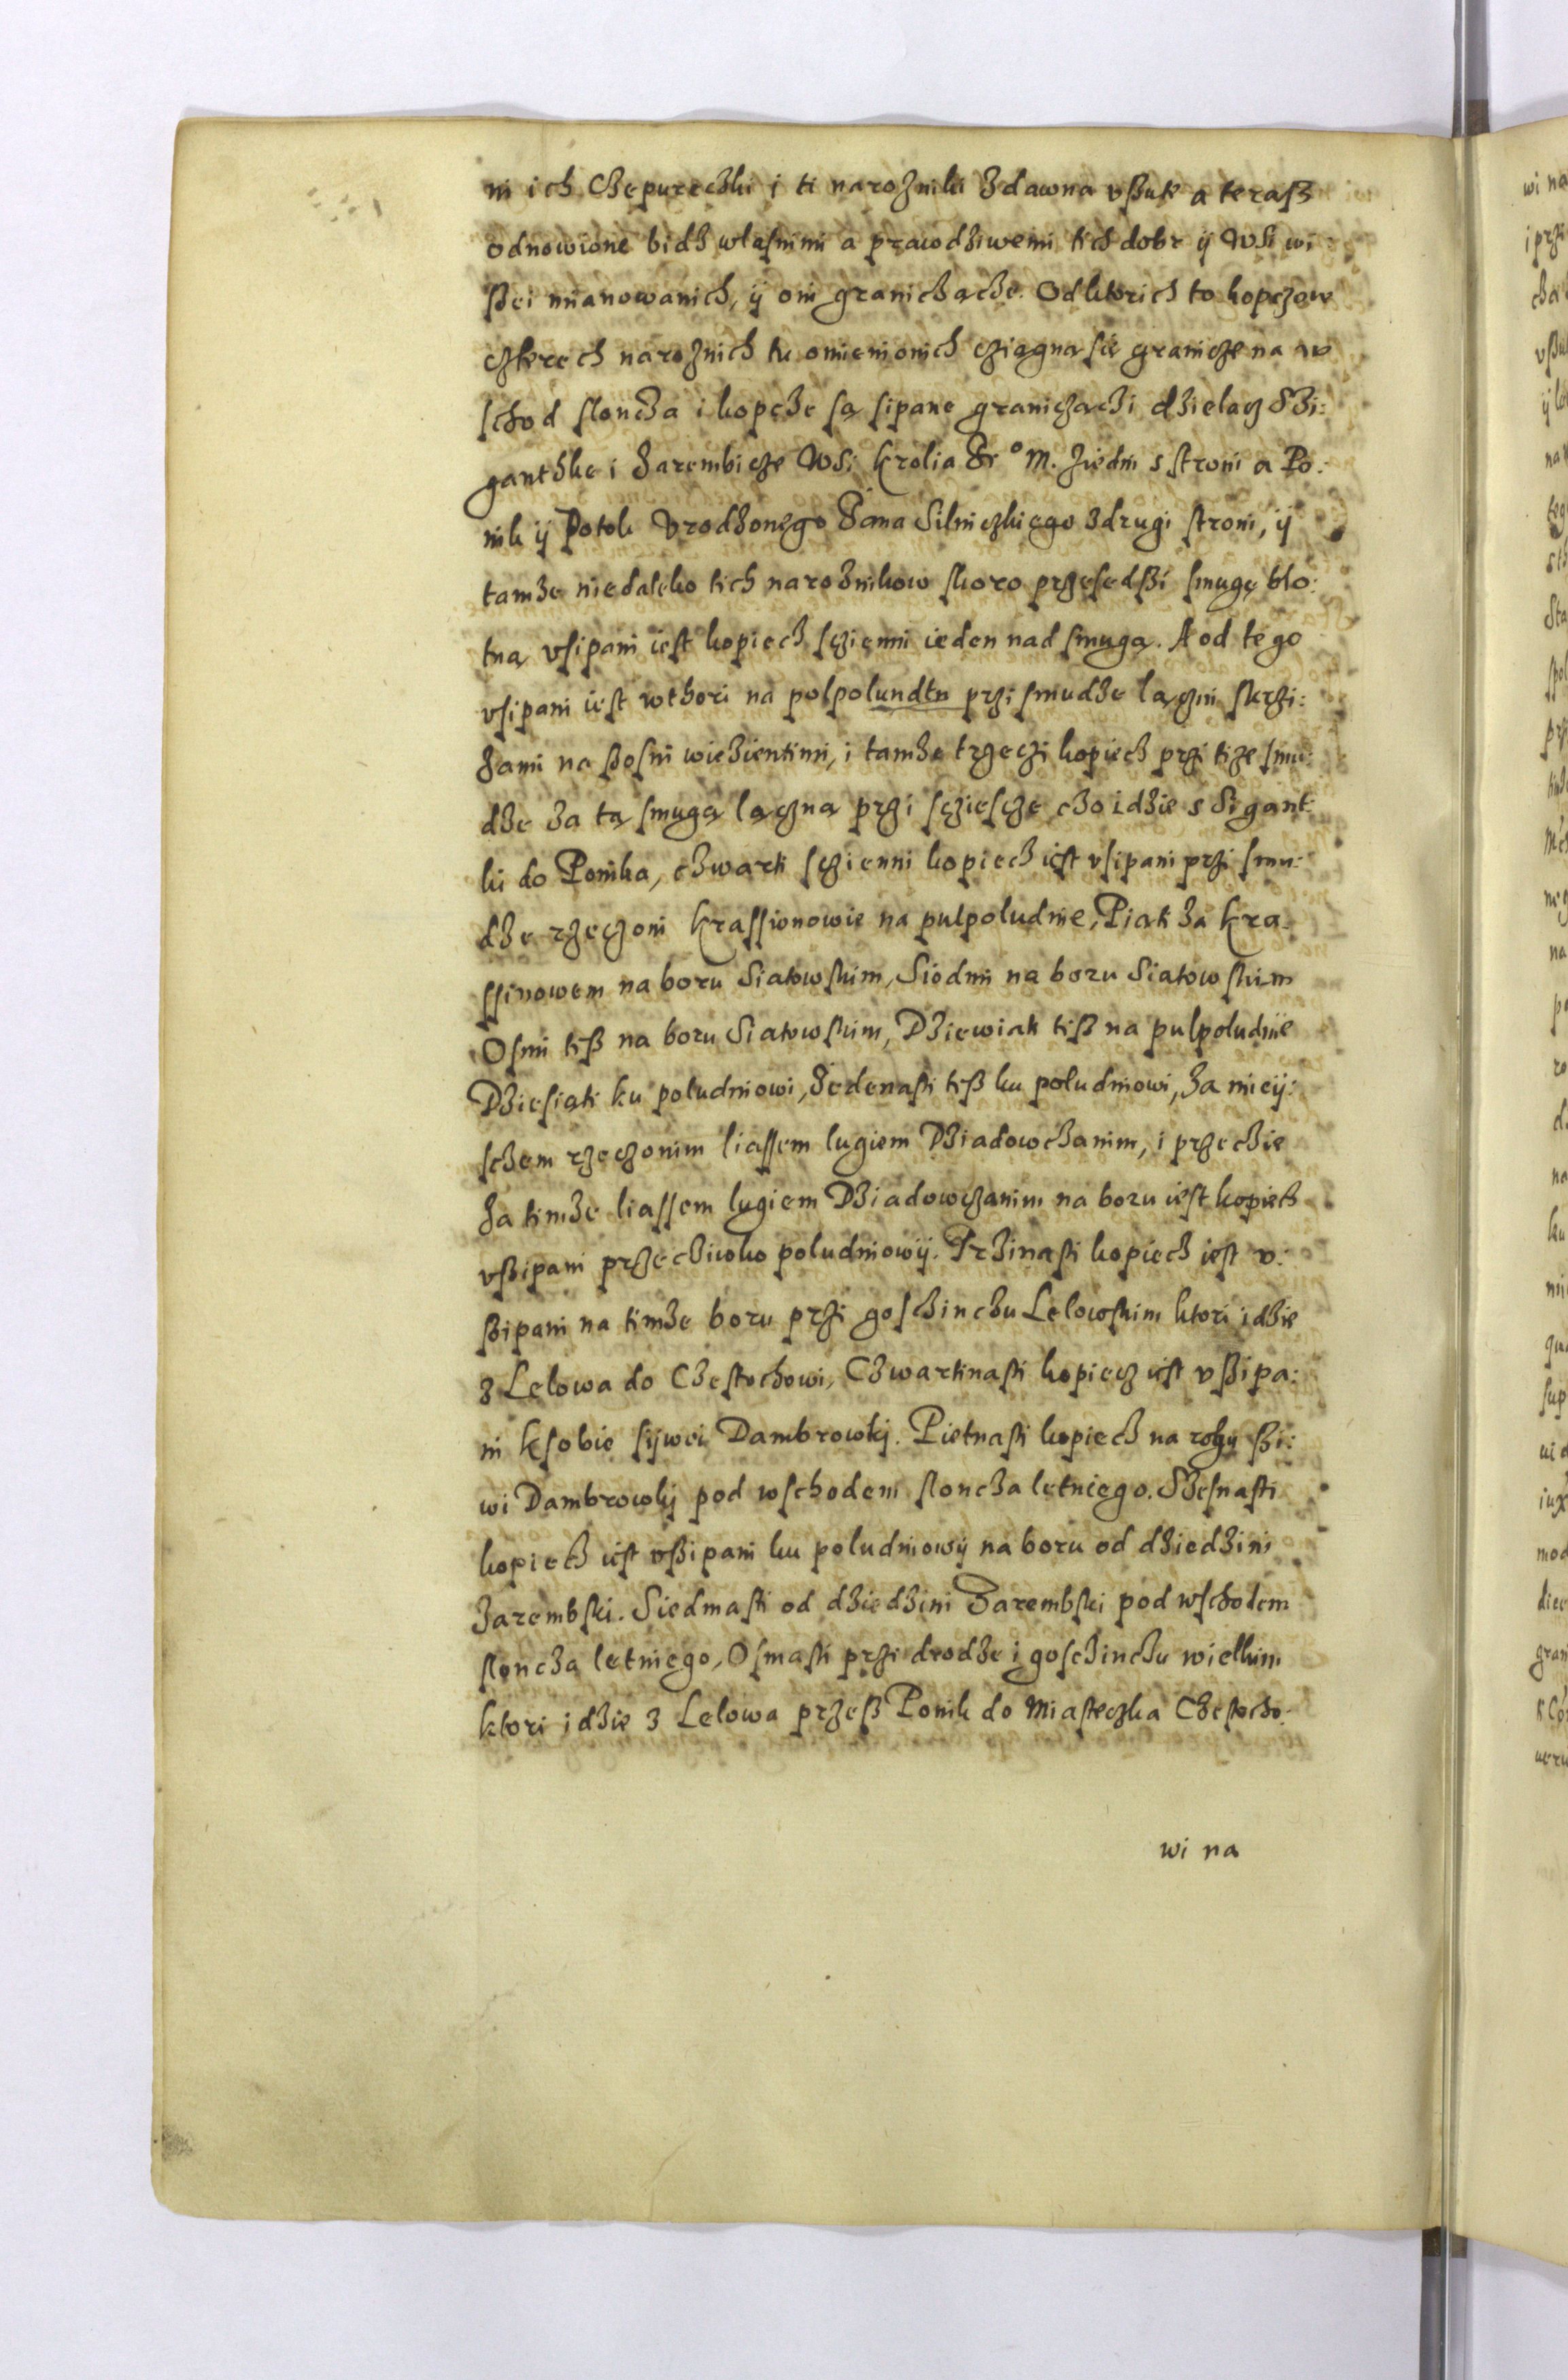 ni ich Czepureczki i ti narozniki zdawna vßute a teraß
odnowione bidz własnimi a prawdziwemi tich dobr ÿ Wsi wi:
ßei mianowanich, ÿ oni graniczacze. Od ktorich to kopczow
czterech naroznich tu omienionich cziągna sie granicze na w
schod słoncza i kopcze są sipane graniczacki dzielacz
gantzke i Zarembicze Wsi Krolia Je° M. Jiedni s stroni a Po:
nik ÿ Potok Vrodzonego Pana Silniczkiego z drugi stroni, ÿ
tamze niedaleko tich naroznikow skoro przesedßi smugę bło:
tną vsipani iest kopiecz sczienni ieden nad smugą. A od tego
vsipani iest wthori na polpolundtn przi smudze lączni skrzi:
zami na sosni wiezientimi, i tamze trzeczi kopiecz przi tize smu:
dze za tą smugą lączną przi scziescze czo idzie s Sigant
ki do Ponika, czwarti sczienni kopiecz iest vsipani przi smu:
dze rzeczoni Krassionowie na pulpoludnie, Piąti za Kra
ssinowem na boru Siatowskim, Siodmi na boru Siatowskim
Osmi tiß na boru Siatowskim, Dziewiąti tiß na pulpoludnie
Dziesiąti ku poludniowi, Jedenasti tiß ku poludniowi, za mieÿ:
sczem rzeczonim liassem lugiem Dziadowczanim, i przeczie
za timze liassem lugiem Dziadowczanim na boru iest kopiecz
vßipani przeciwko poludniowÿ. Trzinasti kopiecz iest v:
ßipani na timze boru przi goscinczu Lelowskim ktori idzie
z Lelowa do Czestochowi, Czwartinasti kopiecz iest vßipa:
ni ksobie sÿwei Dambrowkj. Pietnasti kopiecz na rogu ßi:
wi Dambrowkj pod wschodem słoncza letniego. Szesnasti
kopiecz iest vßipani ku poludniowÿ na boru od dziedzini
Zarembski. Siedmasti od dziedzini Zarembski pod wschodem
słoncza letniego, Osmasti przi drodze i goscinczu wielkim
ktori idzie z Lelowa przeß Ponik do Miasteczka Czestocho:
wi na